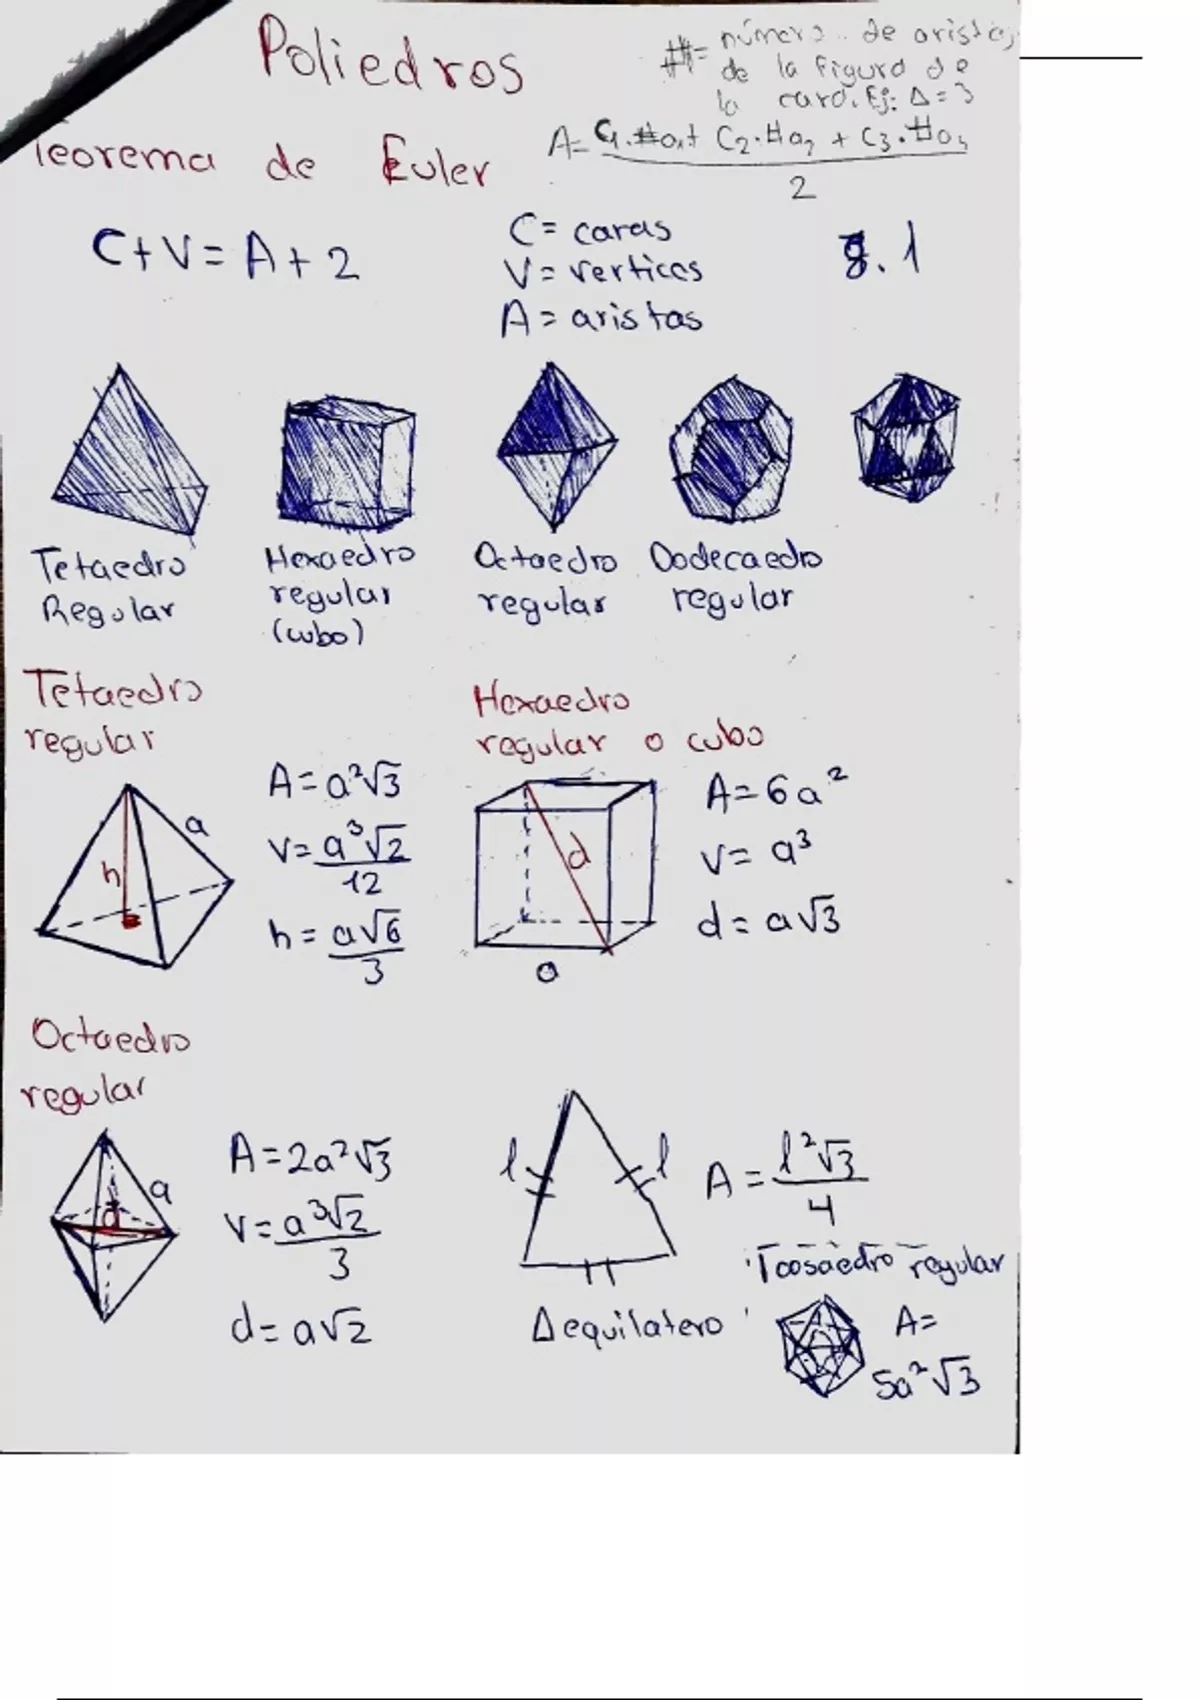 Poliedros
# = número de aristas
de la figura de
la cara. Ej: Δ = 3
Teorema de Euler
A = C1·#a1 + C2·#a2 + C3·#a3
2
C + V = A + 2
C = caras
V = vertices
A = aristas
8.1
Tetaedro
Regular
Hexaedro
regular
(cubo)
Octaedro
regular
Dodecaedro
regular
Tetaedro
regular
A = a²√3
V = a³√2
12
h = a√6
3
a
h
Hexaedro
regular o cubo
A = 6a²
V = a³
d = a√3
d
a
Octaedro
regular
A = 2a²√3
V = a³√2
3
d = a√2
a
d
l
l
A = l²√3
4
Δ equilatero
Icosaedro regular
A =
5a²√3